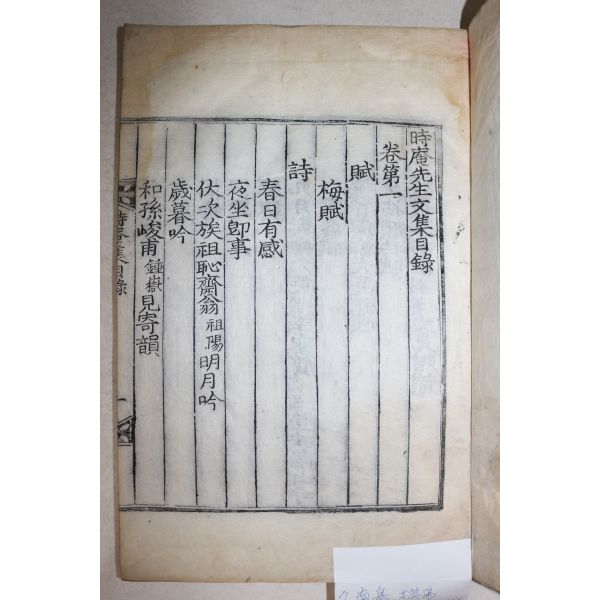 時庵先生文集目錄
卷第一
賦
梅賦
詩
春日有感
夜坐卽事
伏次族祖恥齋翁祖陽明月吟
歲暮吟
和孫峻甫鍾嶽見寄韻
時庵集目錄
一